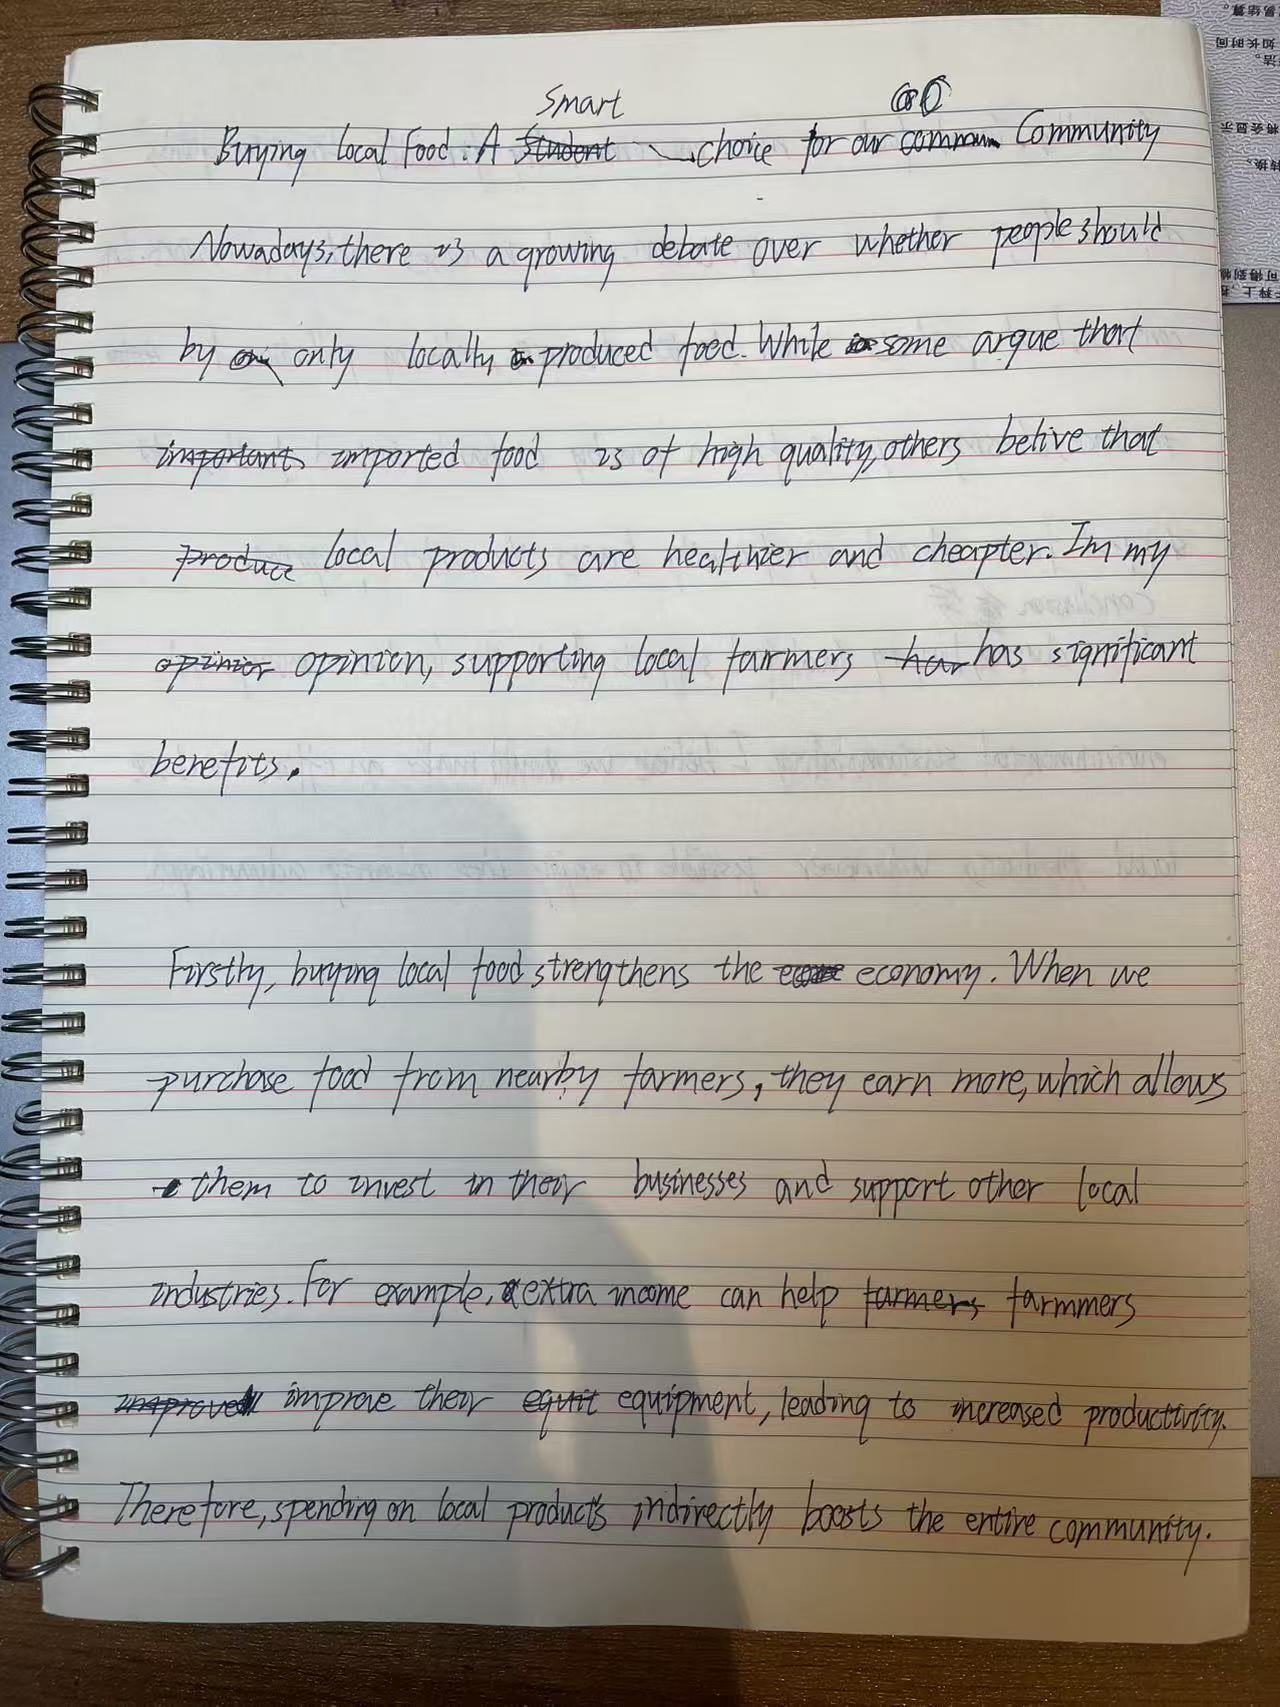 Smart
Buying local Food: A Student choice for our commun Community
Nowadays, there is a growing debate over whether people should
by only locally produced food. While some argue that
important imported food is of high quality, others belive that
produce local products are healthier and cheapter. Im my
opinior opinion, supporting local farmers har has significant
benefits.
Firstly, buying local food strengthens the economy. When we
purchase food from nearby farmers, they earn more, which allows
them to invest in their businesses and support other local
industries. For example, extra income can help farmers farmmers
improve improve their equit equipment, leading to increased productivity.
Therefore, spending on local products indirectly boosts the entire community.